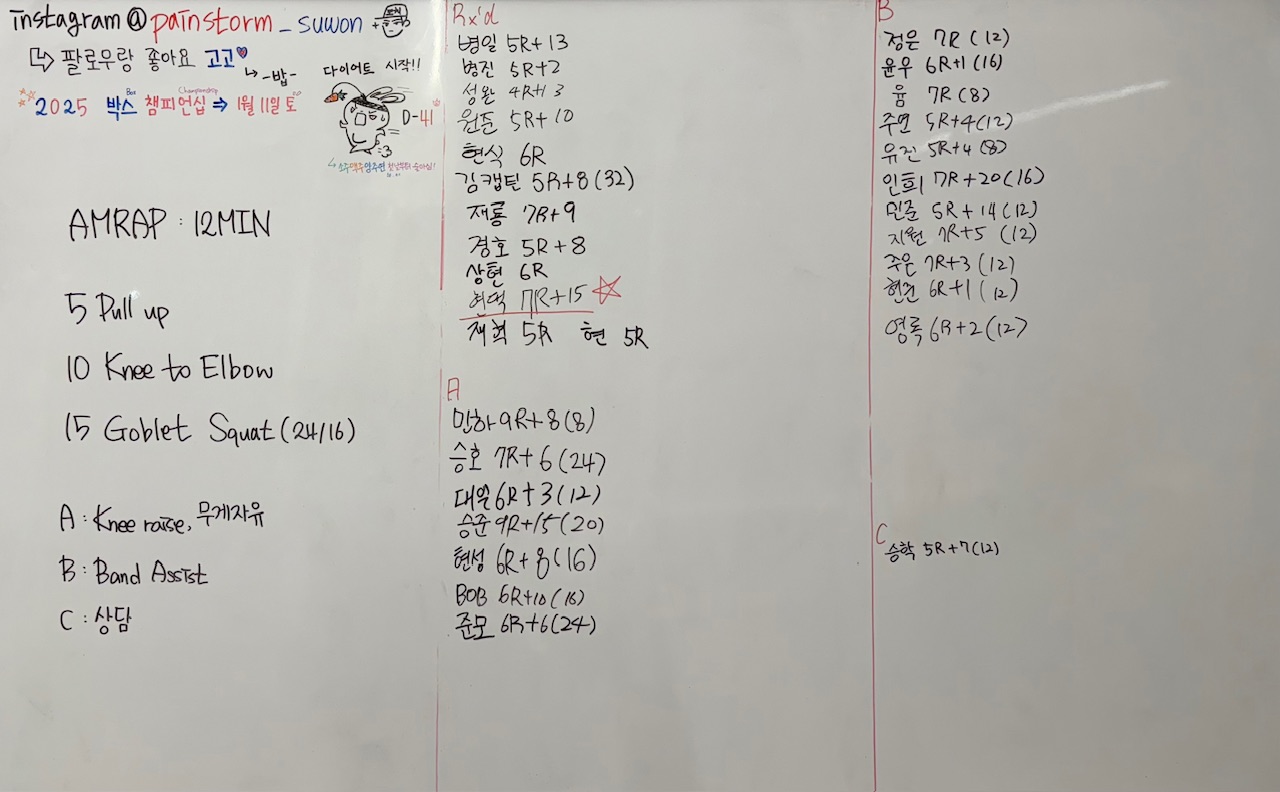 instagram @painstorm_suwon +친구
↳ 팔로우랑 좋아요 고고♥
↳ -밥-
2025 박스 챔피언십 ⇒ 1월 11일 토
Box Championship
다이어트 시작!!
D-41
AMRAP : 12MIN
5 Pull up
10 Knee to Elbow
15 Goblet Squat (24/16)
A : Knee raise, 무게자유
B : Band Assist
C : 상담
Rx'd
병일 5R+13
병진 5R+2
성완 4R+13
원준 5R+10
현식 6R
김캡틴 5R+8 (32)
재룡 7R+9
경호 5R+8
상현 6R
7R+15 ☆
재혁 5R 현 5R
A
민하 9R+8 (8)
승호 7R+6 (24)
대일 6R+3 (12)
승준 9R+15 (20)
현성 6R+8 (16)
BOB 6R+10 (16)
준모 6R+6 (24)
B
정은 7R (12)
윤우 6R+1 (16)
움 7R (8)
주연 5R+4 (12)
유진 5R+4 (8)
인희 7R+20 (16)
민준 5R+14 (12)
지원 7R+5 (12)
주은 7R+3 (12)
현건 6R+1 (12)
영록 6R+2 (12)
C
승학 5R+7 (12)